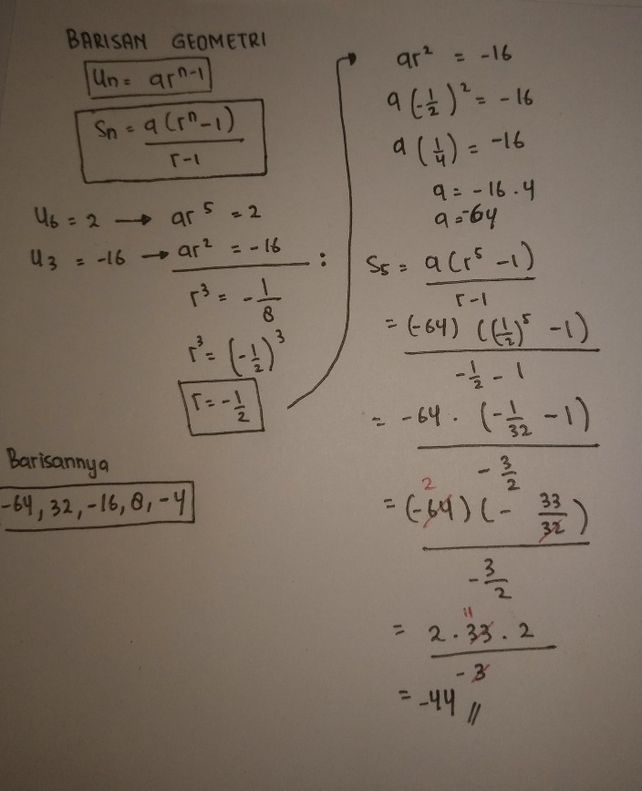 BARISAN GEOMETRI
Un = ar^(n-1)
Sn = a(r^n - 1) / (r - 1)
U6 = 2 → ar^5 = 2
U3 = -16 → ar^2 = -16 :
r^3 = -1/8
r^3 = (-1/2)^3
r = -1/2
Barisannya
-64, 32, -16, 8, -4
ar^2 = -16
a(-1/2)^2 = -16
a(1/4) = -16
a = -16 . 4
a = -64
S5 = a(r^5 - 1) / (r - 1)
= (-64) ((1/2)^5 - 1) / (-1/2 - 1)
= -64 . (-1/32 - 1) / (-3/2)
2
= (-64) (- 33/32) / (-3/2)
11
= 2 . 33 . 2 / -3
= -44 //